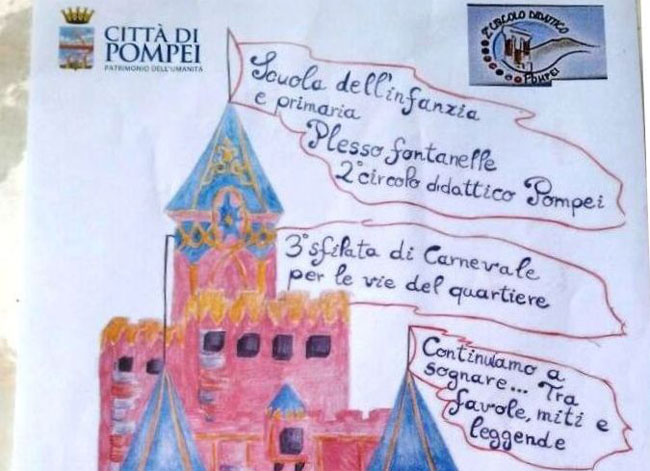 CITTÀ DI
POMPEI
PATRIMONIO DELL'UMANITÀ
2° CIRCOLO DIDATTICO
POMPEI
Scuola dell'infanzia
e primaria
Plesso fontanelle
2°circolo didattico Pompei
3°sfilata di Carnevale
per le vie del quartiere
Continuiamo a
sognare... Tra
favole, miti e
leggende